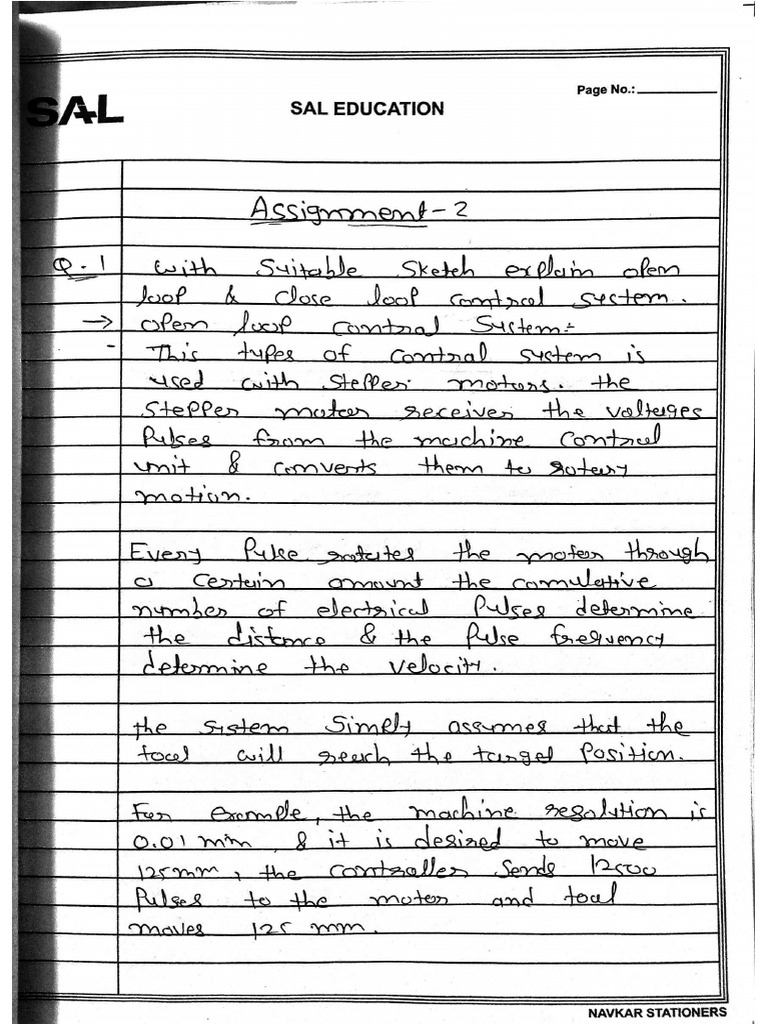 Page No.:
SAL
SAL EDUCATION
Assignment-2
Q.1 with suitable sketch explain open
loop & close loop control system.
→ open loop control system:-
- This types of control system is
used with stepper motors. the
stepper motor receives the voltages
Pulses from the machine control
unit & converts them to rotary
motion.
Every Pulse rotates the motor through
a certain amount the comulative
number of electrical Pulses determine
the distance & the Pulse frequency
determine the velocity.
the sistem simply assumes that the
tool will reach the target Position.
For example, the machine resolution is
0.01 mm & it is desired to move
125mm, the controller sends 12500
Pulses to the motor and tool
moves 125 mm.
NAVKAR STATIONERS